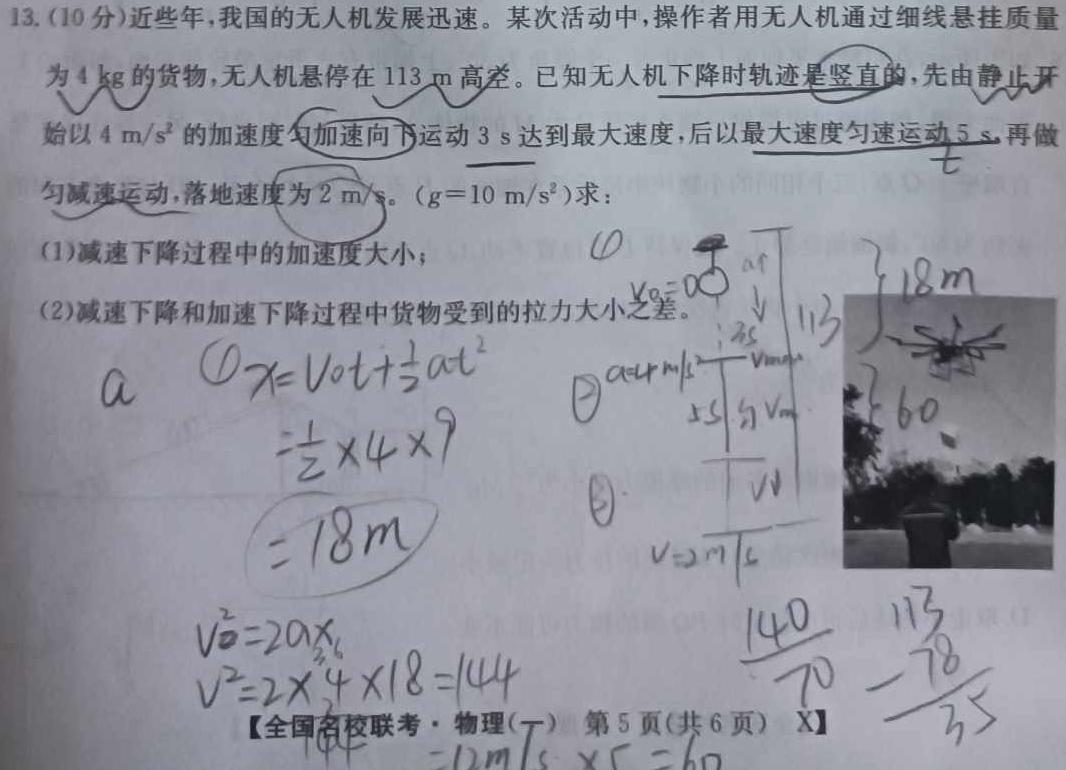 13.(10分)近些年,我国的无人机发展迅速。某次活动中,操作者用无人机通过细线悬挂质量
为4 kg的货物,无人机悬停在113 m高空。已知无人机下降时轨迹是竖直的,先由静止开
始以4 m/s²的加速度匀加速向下运动3 s达到最大速度,后以最大速度匀速运动5 s,再做
t
匀减速运动,落地速度为2 m/s。(g=10 m/s²)求:
(1)减速下降过程中的加速度大小;
(2)减速下降和加速下降过程中货物受到的拉力大小之差。
① v₀=0 a↑ v 113 18m
3s
② a=4m/s² Vmax
5s 匀 Vm 60
③ v↓
v=2m/s
a ①x=V₀t+½at²
=½×4×9
=18m
V²=2ax
V²=2×4×18=144
144
=12m/s ×5=60
140
70
113
-78
35
【全国名校联考·物理(一) 第5页(共6页) X】